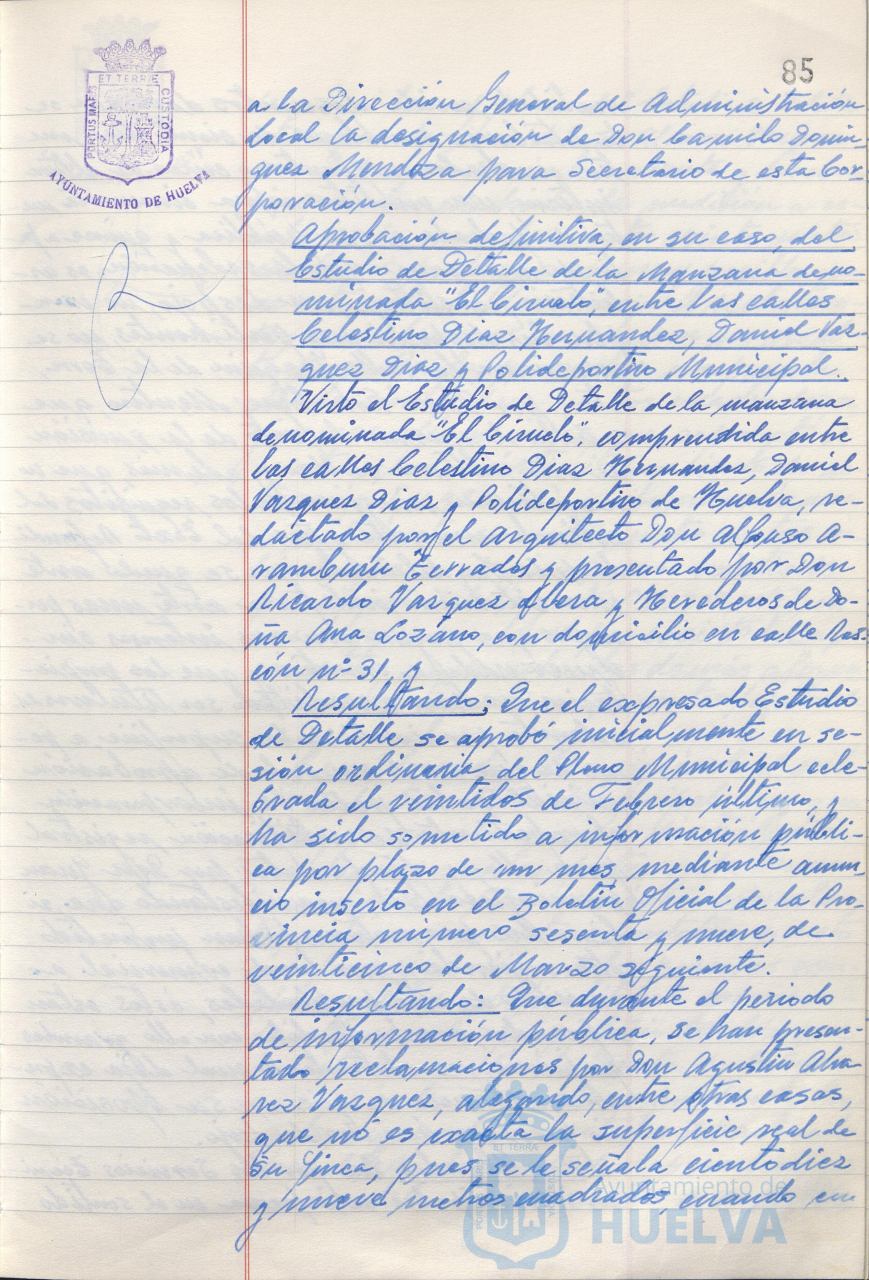 85
PORTUS MARIS ET TERRÆ CUSTODIA
AYUNTAMIENTO DE HUELVA
a la Dirección General de Administración
Local la designación de Don Camilo Domin-
guez Mendoza para Secretario de esta Cor-
poración.
Aprobación definitiva, en su caso, del
Estudio de Detalle de la Manzana deno-
minada "El Ciruelo", entre las calles
Celestino Diaz Hernandez, Daniel Vaz-
quez Diaz y Polideportivo Municipal.
Visto el Estudio de Detalle de la manzana
denominada "El Ciruelo", comprendida entre
las calles Celestino Diaz Hernandez, Daniel
Vazquez Diaz y Polideportivo de Huelva, re-
dactado por el Arquitecto Don Alfonso A-
ramburu Terrados y presentado por Don
Ricardo Vazquez Abera y Herederos de Do-
ña Ana Lozano, con domicilio en calle Ras-
cón nº 31, y
Resultando: Que el expresado Estudio
de Detalle se aprobó inicialmente en se-
sión ordinaria del Pleno Municipal cele-
brada el veintidos de Febrero último, y
ha sido sometido a información públi-
ca por plazo de un mes, mediante anun-
cio inserto en el Boletín Oficial de la Pro-
vincia número sesenta y nueve, de
veinticinco de Marzo seguiente.
Resultando: Que durante el periodo
de información pública, se han presen-
tado reclamaciones por Don Agustin Alva
rez Vazquez, alegando, entre otras cosas,
que no es exacta la superficie real de
su finca, pues se le señala ciento diez
y nueve metros cuadrados, cuando en
Ayuntamiento de
HUELVA